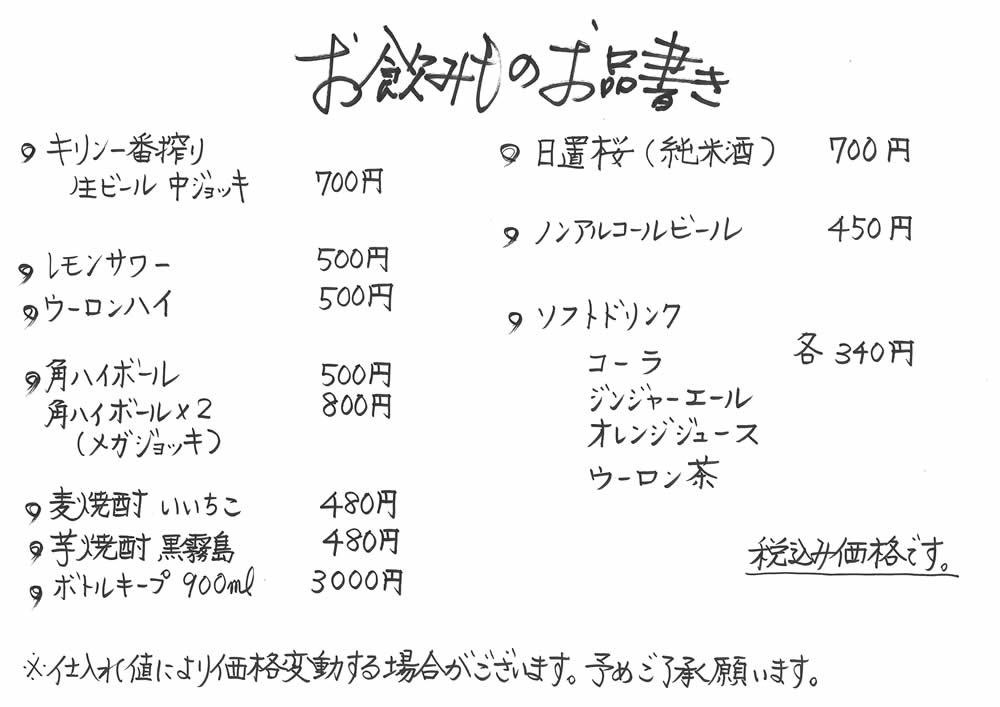 お飲みものお品書き
キリン一番搾り
生ビール 中ジョッキ 700円
レモンサワー 500円
ウーロンハイ 500円
角ハイボール 500円
角ハイボール×2 800円
(メガジョッキ)
麦焼酎 いいちこ 480円
芋焼酎 黒霧島 480円
ボトルキープ 900ml 3000円
日置桜(純米酒) 700円
ノンアルコールビール 450円
ソフトドリンク
各340円
コーラ
ジンジャーエール
オレンジジュース
ウーロン茶
税込み価格です。
※仕入れ値により価格変動する場合がございます。予めご了承願います。